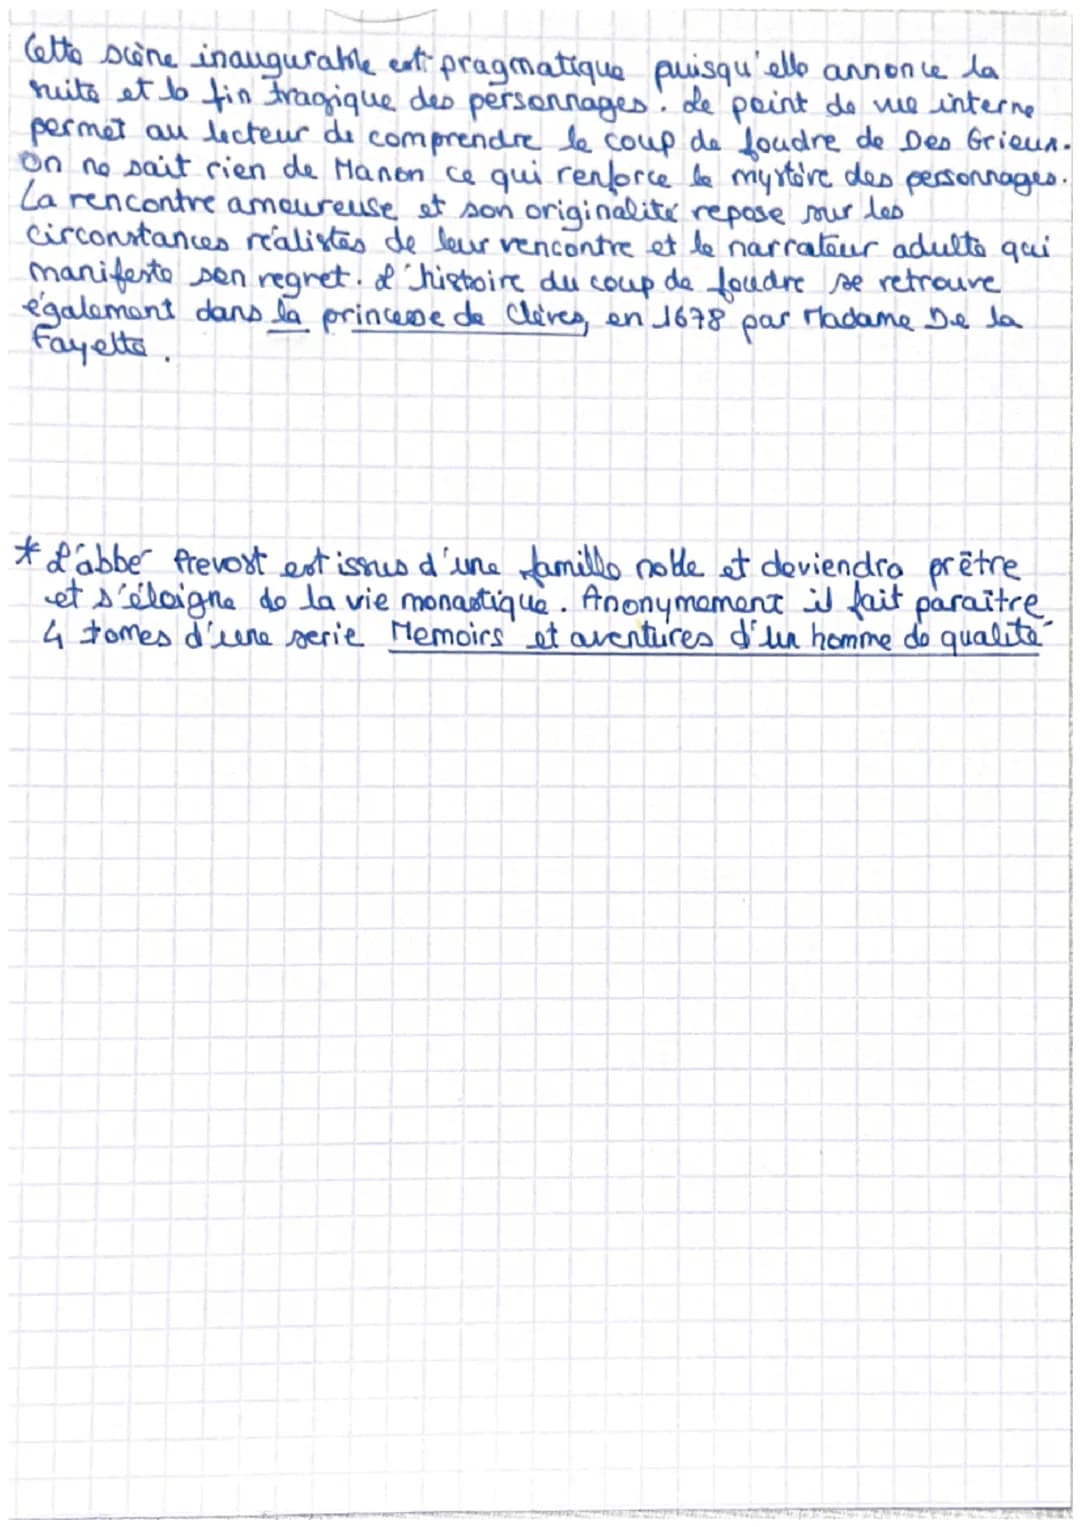 Cette scène inaugurable est pragmatique puisqu'elle annonce la
suite et la fin tragique des personnages. Le point de vue interne
permet au lecteur de comprendre le coup de foudre de Des Grieux.
On ne sait rien de Manon ce qui renforce le mystère des personnages.
La rencontre amoureuse et son originalité repose sur les
circonstances réalistes de leur rencontre et le narrateur adulte qui
manifeste son regret. L'histoire du coup de foudre se retrouve
également dans la princesse de Clèves, en 1678 par Madame De la
Fayette.
* L'abbé Prevost est issus d'une famille noble et deviendra prêtre
et s'éloigne de la vie monastique. Anonymement il fait paraître
4 tomes d'une serie Memoirs et aventures d'un homme de qualité